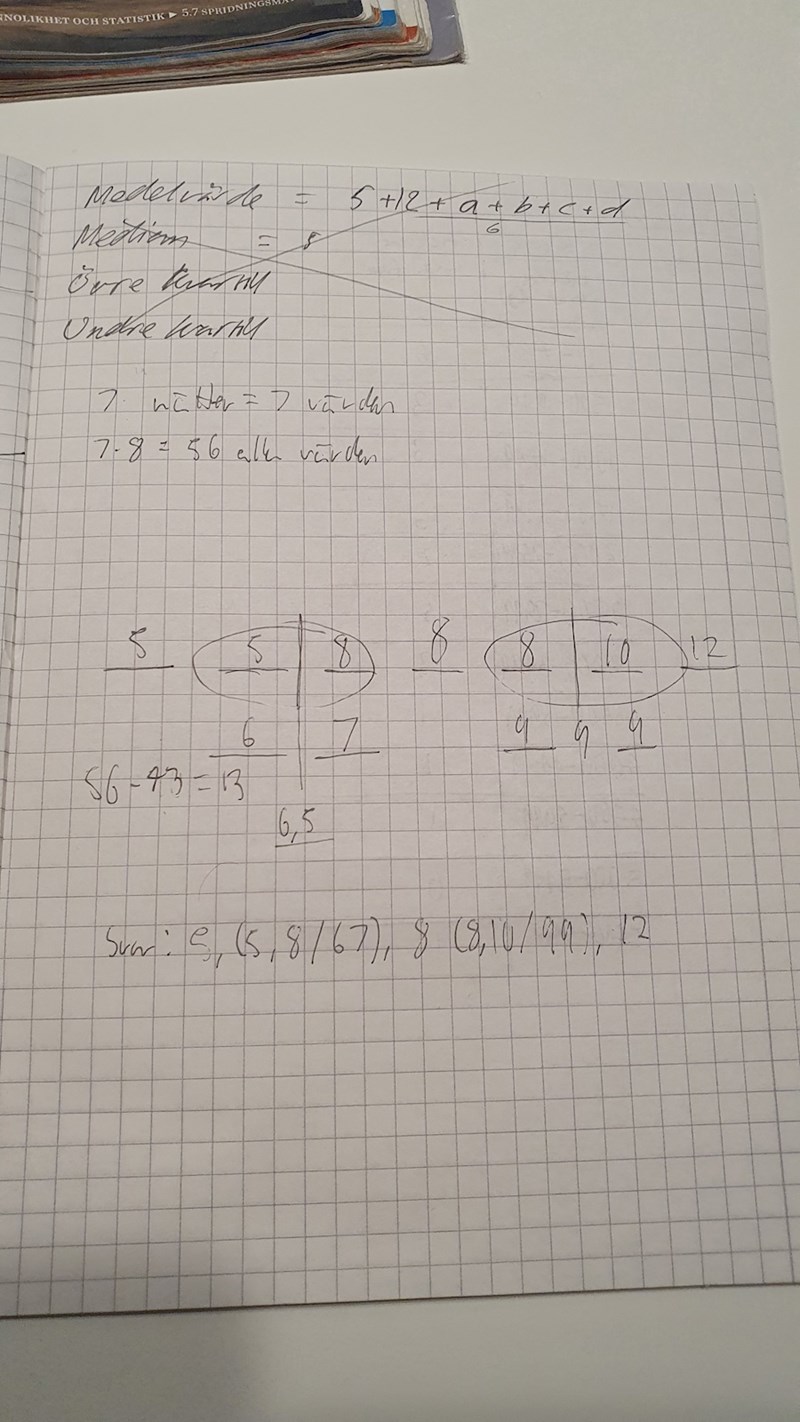 NNOLIKHET OCH STATISTIK ► 5.7 SPRIDNINGSMÅ
Medelvärde = 5+12+a+b+c+d
6
Median = 8
Övre kvartil
Undre kvartil
7 nätter = 7 värden
7·8 = 56 alla värden
5 5 8 8 8 10 12
6 7 9 9 9
56-43=13
6,5
Svar: 5, (5,8/67), 8 (8,10/99), 12